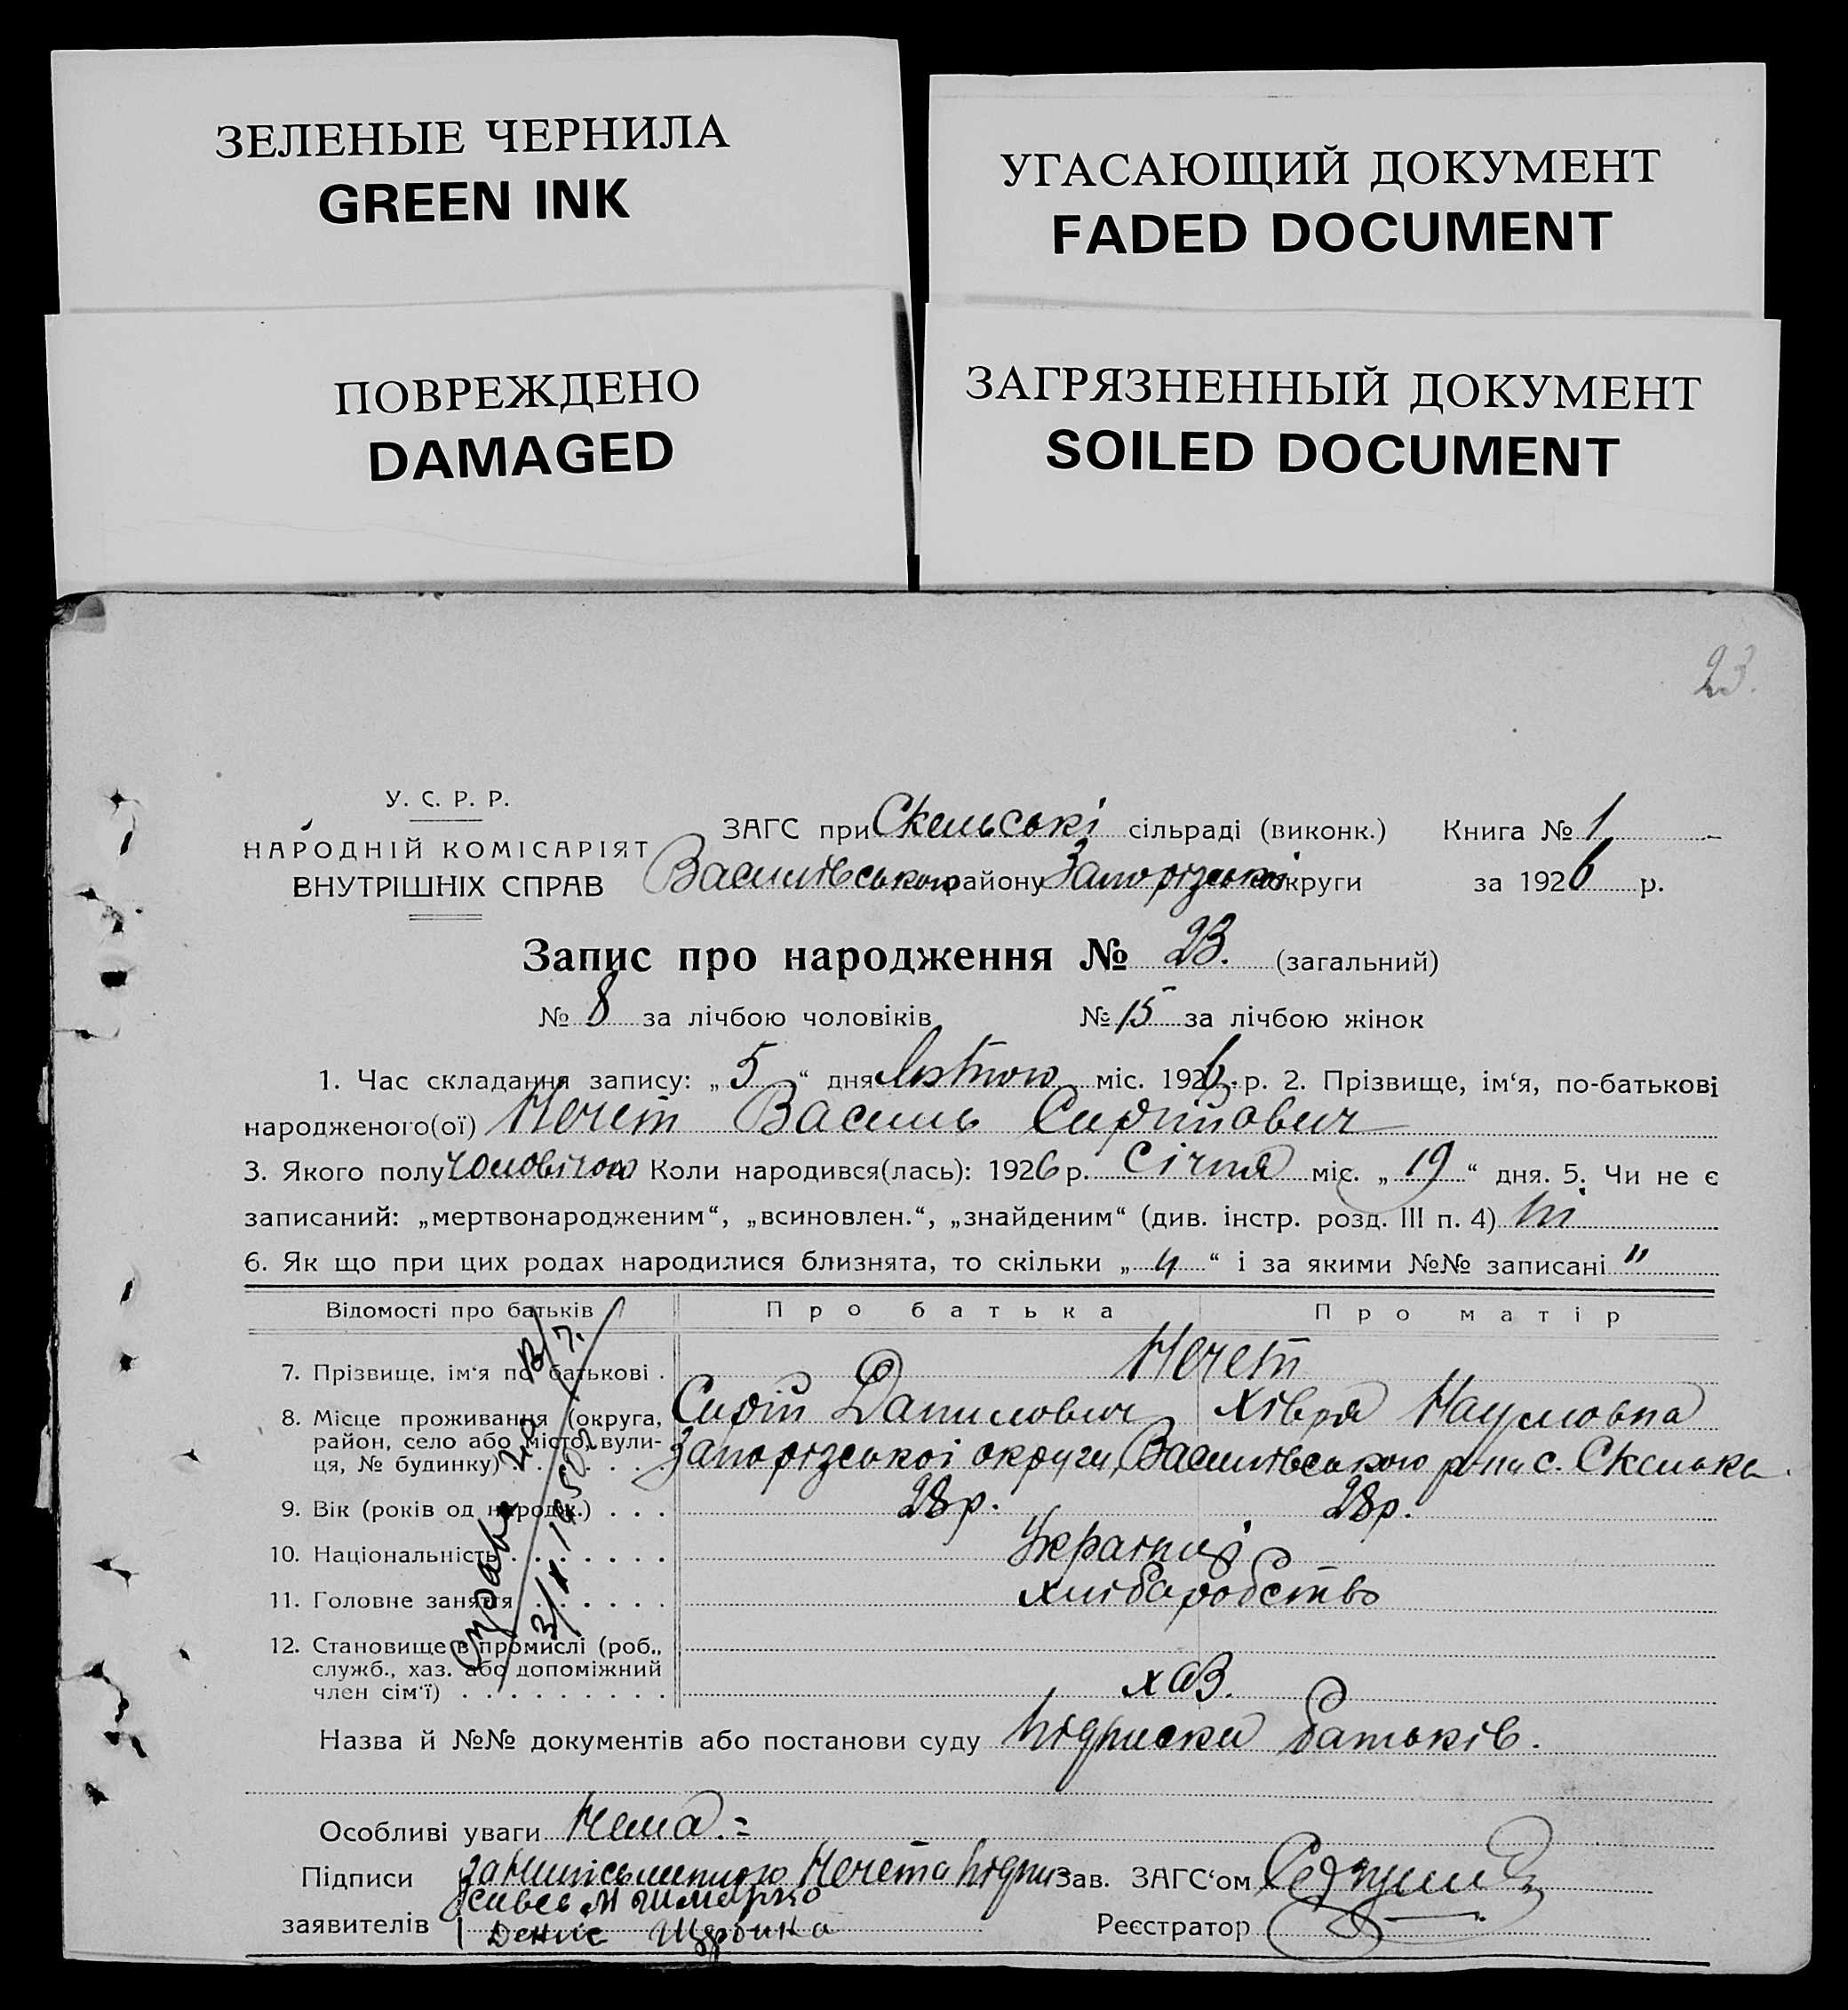 ЗЕЛЕНЫЕ ЧЕРНИЛА
GREEN INK
УГАСАЮЩИЙ ДОКУМЕНТ
FADED DOCUMENT
ПОВРЕЖДЕНО
DAMAGED
ЗАГРЯЗНЕННЫЙ ДОКУМЕНТ
SOILED DOCUMENT
23.
У. С. Р. Р.
НАРОДНІЙ КОМІСАРІЯТ
ВНУТРІШНІХ СПРАВ
ЗАГС при Скельські сільраді (виконк.) Книга № 1
Василівського району Запорізької округи за 1926 р.
Запис про народження № 23. (загальний)
№ 8 за лічбою чоловіків № 15 за лічбою жінок
1. Час складання запису: „5“ дня лютого міс. 1926 р. 2. Прізвище, ім‘я, по-батькові
народженого(ої) Нечет Василь
3. Якого полу чоловічого Коли народився(лась): 1926 р. Січня міс. „19“ дня. 5. Чи не є
записаний: „мертвонародженим“, „всиновлен.“, „знайденим“ (див. інстр. розд. III п. 4) ні
6. Як що при цих родах народилися близнята, то скільки „ “ і за якими №№ записані "
Відомості про батьків Про батька Про матір
7. Прізвище, ім‘я по батькові . Нечет
8. Місце проживання (округа, Данилович Хівря Наумовна
район, село або місто, вули-
ця, № будинку) Запорізської округи, Василівського р-ну с. Скелька
9. Вік (років од народж.) . . . 28 р. 28 р.
10. Національність Українці
11. Головне заняття хлібаробство
12. Становище в промислі (роб.,
служб., хаз. або допоміжний
член сім‘ї) хаз.
Назва й №№ документів або постанови суду підписка батьків.
Особливі уваги Нема.=
Підписи за Нечета підпи- Зав. ЗАГС‘ом
заявителів Денис Щербина Реєстратор